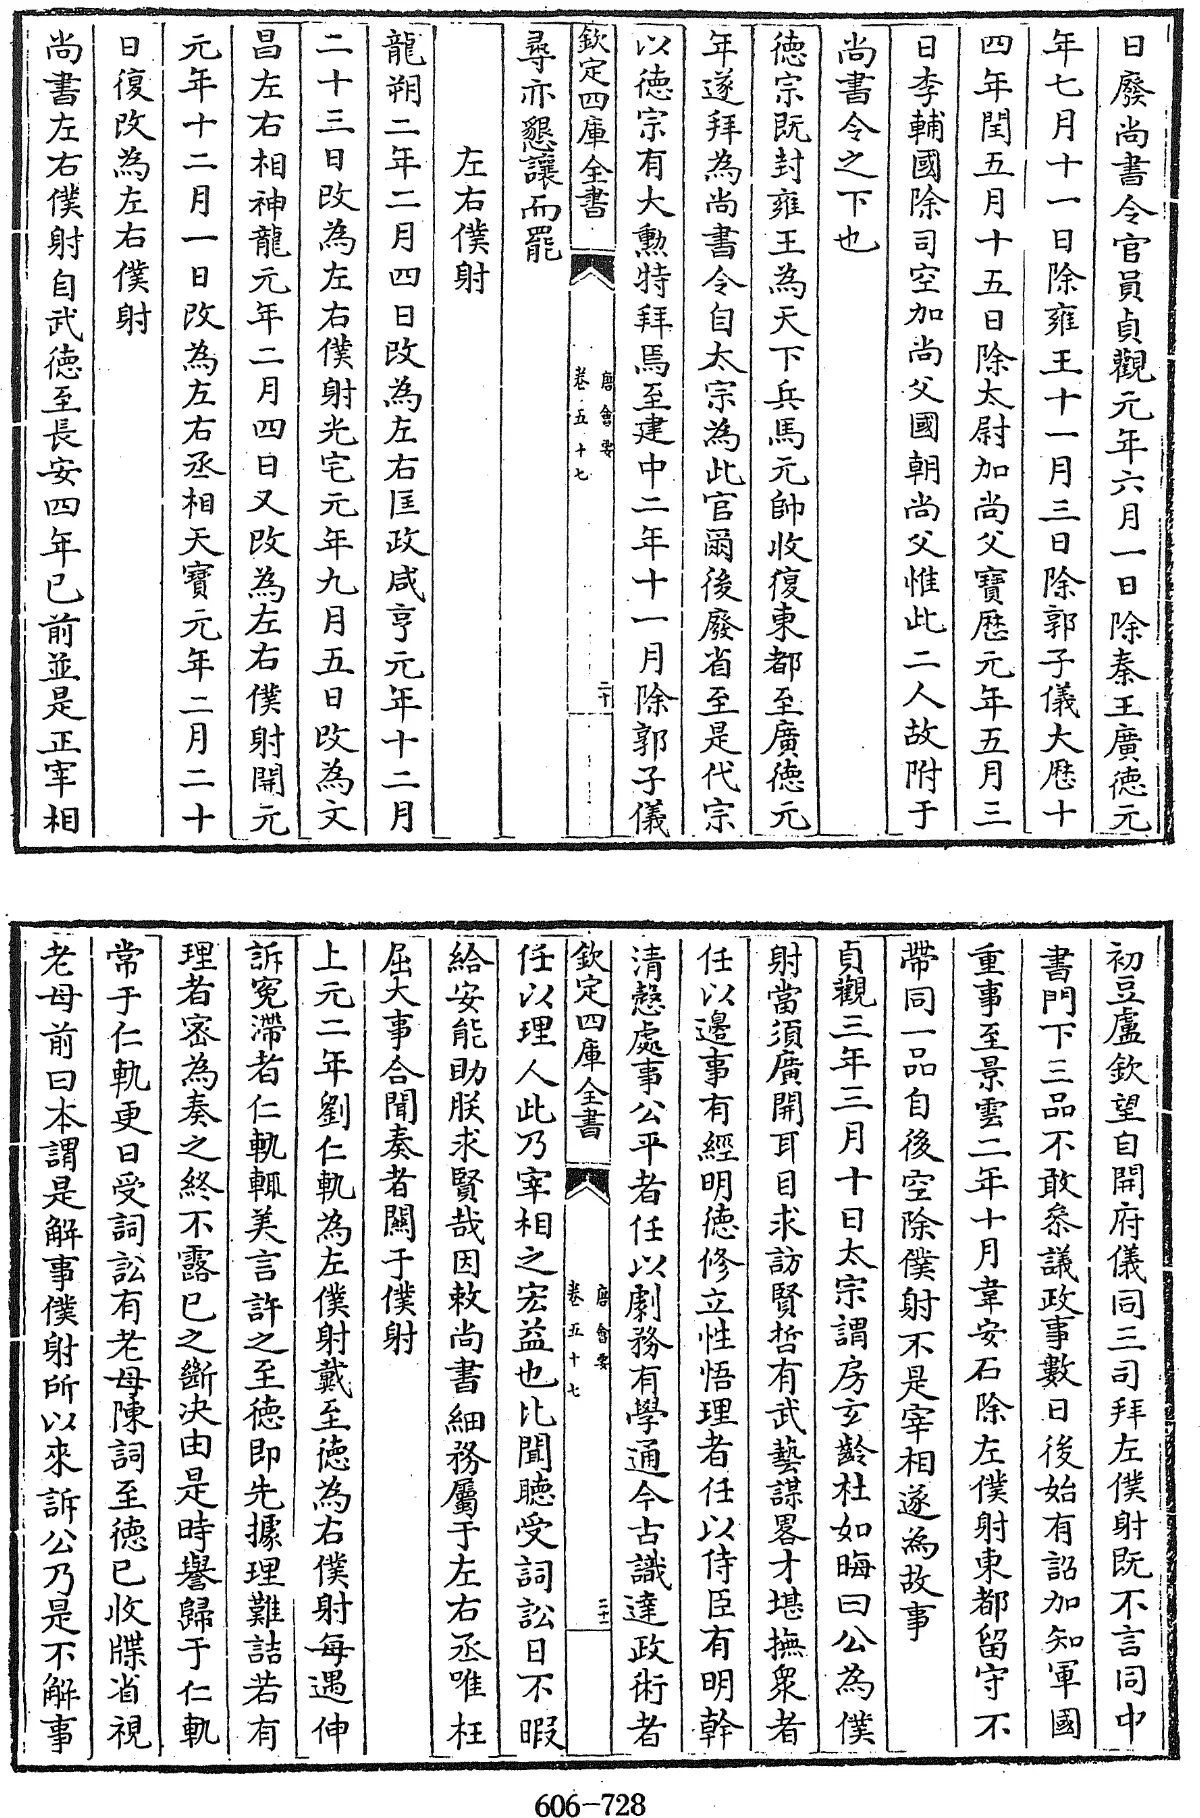 日廢尚書令官員貞觀元年六月一日除秦王廣徳元
年七月十一日除雍王十一月三日除郭子儀大厯十
四年閏五月十五日除太尉加尚父寶厯元年五月三
日李輔國除司空加尚父國朝尚父惟此二人故附于
尚書令之下也
徳宗既封雍王為天下兵馬元帥收復東都至廣徳元
年遂拜為尚書令自太宗為此官爾後廢省至是代宗
以徳宗有大勲特拜焉至建中二年十一月除郭子儀
欽定四庫全書
唐會要
卷五十七
二十
尋亦懇讓而罷
左右僕射
龍朔二年二月四日改為左右匡政咸亨元年十二月
二十三日改為左右僕射光宅元年九月五日改為文
昌左右相神龍元年二月四日又改為左右僕射開元
元年十二月一日改為左右丞相天寶元年二月二十
日復改為左右僕射
尚書左右僕射自武徳至長安四年已前並是正宰相
初豆盧欽望自開府儀同三司拜左僕射既不言同中
書門下三品不敢叅議政事數日後始有詔加知軍國
重事至景雲二年十月韋安石除左僕射東都留守不
帶同一品自後空除僕射不是宰相遂為故事
貞觀三年三月十日太宗謂房玄齡杜如晦曰公為僕
射當須廣開耳目求訪賢哲有武藝謀畧才堪撫衆者
任以邊事有經明徳修立性悟理者任以侍臣有明幹
清慤處事公平者任以劇務有學通今古識達政術者
欽定四庫全書
唐會要
卷五十七
二十一
任以理人此乃宰相之宏益也比聞聽受詞訟日不暇
給安能助朕求賢哉因敕尚書細務屬于左右丞唯枉
屈大事合聞奏者關于僕射
上元二年劉仁軌為左僕射戴至徳為右僕射每遇伸
訴寃滯者仁軌輒美言許之至徳即先據理難詰若有
理者宻為奏之終不露已之斷决由是時譽歸于仁軌
常于仁軌更日受詞訟有老母陳詞至徳已收牒省視
老母前曰本謂是解事僕射所以來訴公乃是不解事
606-728